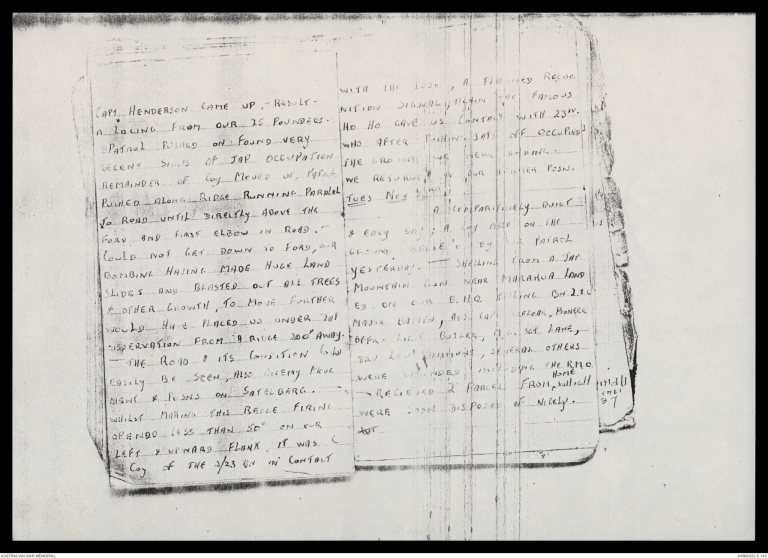 CAPT HENDERSON CAME UP, - RESULT -
A LACING FROM OUR 25 POUNDERS.
PATROL PUSHED ON. FOUND VERY
RECENT SIGNS OF JAP OCCUPATION
REMAINDER OF COY MOVED UP, PATROL
PUSHED ALONG RIDGE RUNNING PARALAL
TO ROAD UNTIL DIRECTLY ABOVE THE
FORD AND FIRST ELBOW IN ROAD. -
COULD NOT GET DOWN TO FORD, OUR
BOMBING HAVING MADE HUGE LAND
SLIDES AND BLASTED OUT ALL TREES
& OTHER GROWTH, TO MOVE FURTHER
WOULD HAVE PLACED US UNDER JAP
OBSERVATION FROM A RIDGE 200* AWAY.
- THE ROAD & ITS CONDITION COULD
EASILY BE SEEN, ALSO ENEMY MOVE
MENT & POSNS ON SATELBERG. -
WHILST MAKING THIS RECCE FIRING
SPANDO LESS THAN 50* ON OUR
LEFT & UPWARD FLANK, IT WAS
COY OF THE 2/23 BN IN CONTACT
WITH THE , A PLANNED RECOG
NITION SIGNAL, AGAIN THE FAMOUS
HO HO GAVE US CONTACT WITH 23RD.
WHO AFTER PUSHING JAPS OFF OCCUPIED
THE GROUND WE WERE HOLDING.
WE RETURNED TO OUR FORMER POSN.
TUES NOV
A COMPARITIVELY QUIET
& EASY DAY, A COY ARE ON THE
GROUND RECCIED BY OUR PATROL
YESTERDAY. - SHELLING FROM A JAP
MOUNTAIN GUN NEAR MARARUA LAND
ED ON OUR B.H.Q KILLING BN 2 I/C
MAJOR BATTEN, ADJ. CAPT TRELOAR, PIONEER
OFFR. LIEUT BUTLER, M.G. SGT LANE,
, SEVERAL OTHERS
WERE WOUNDED, INCLUDING THE R.M.O
- RECIEVED 2 PARCELS FROM HOME, WHICH
WERE SOON DISPOSED OF NICELY.